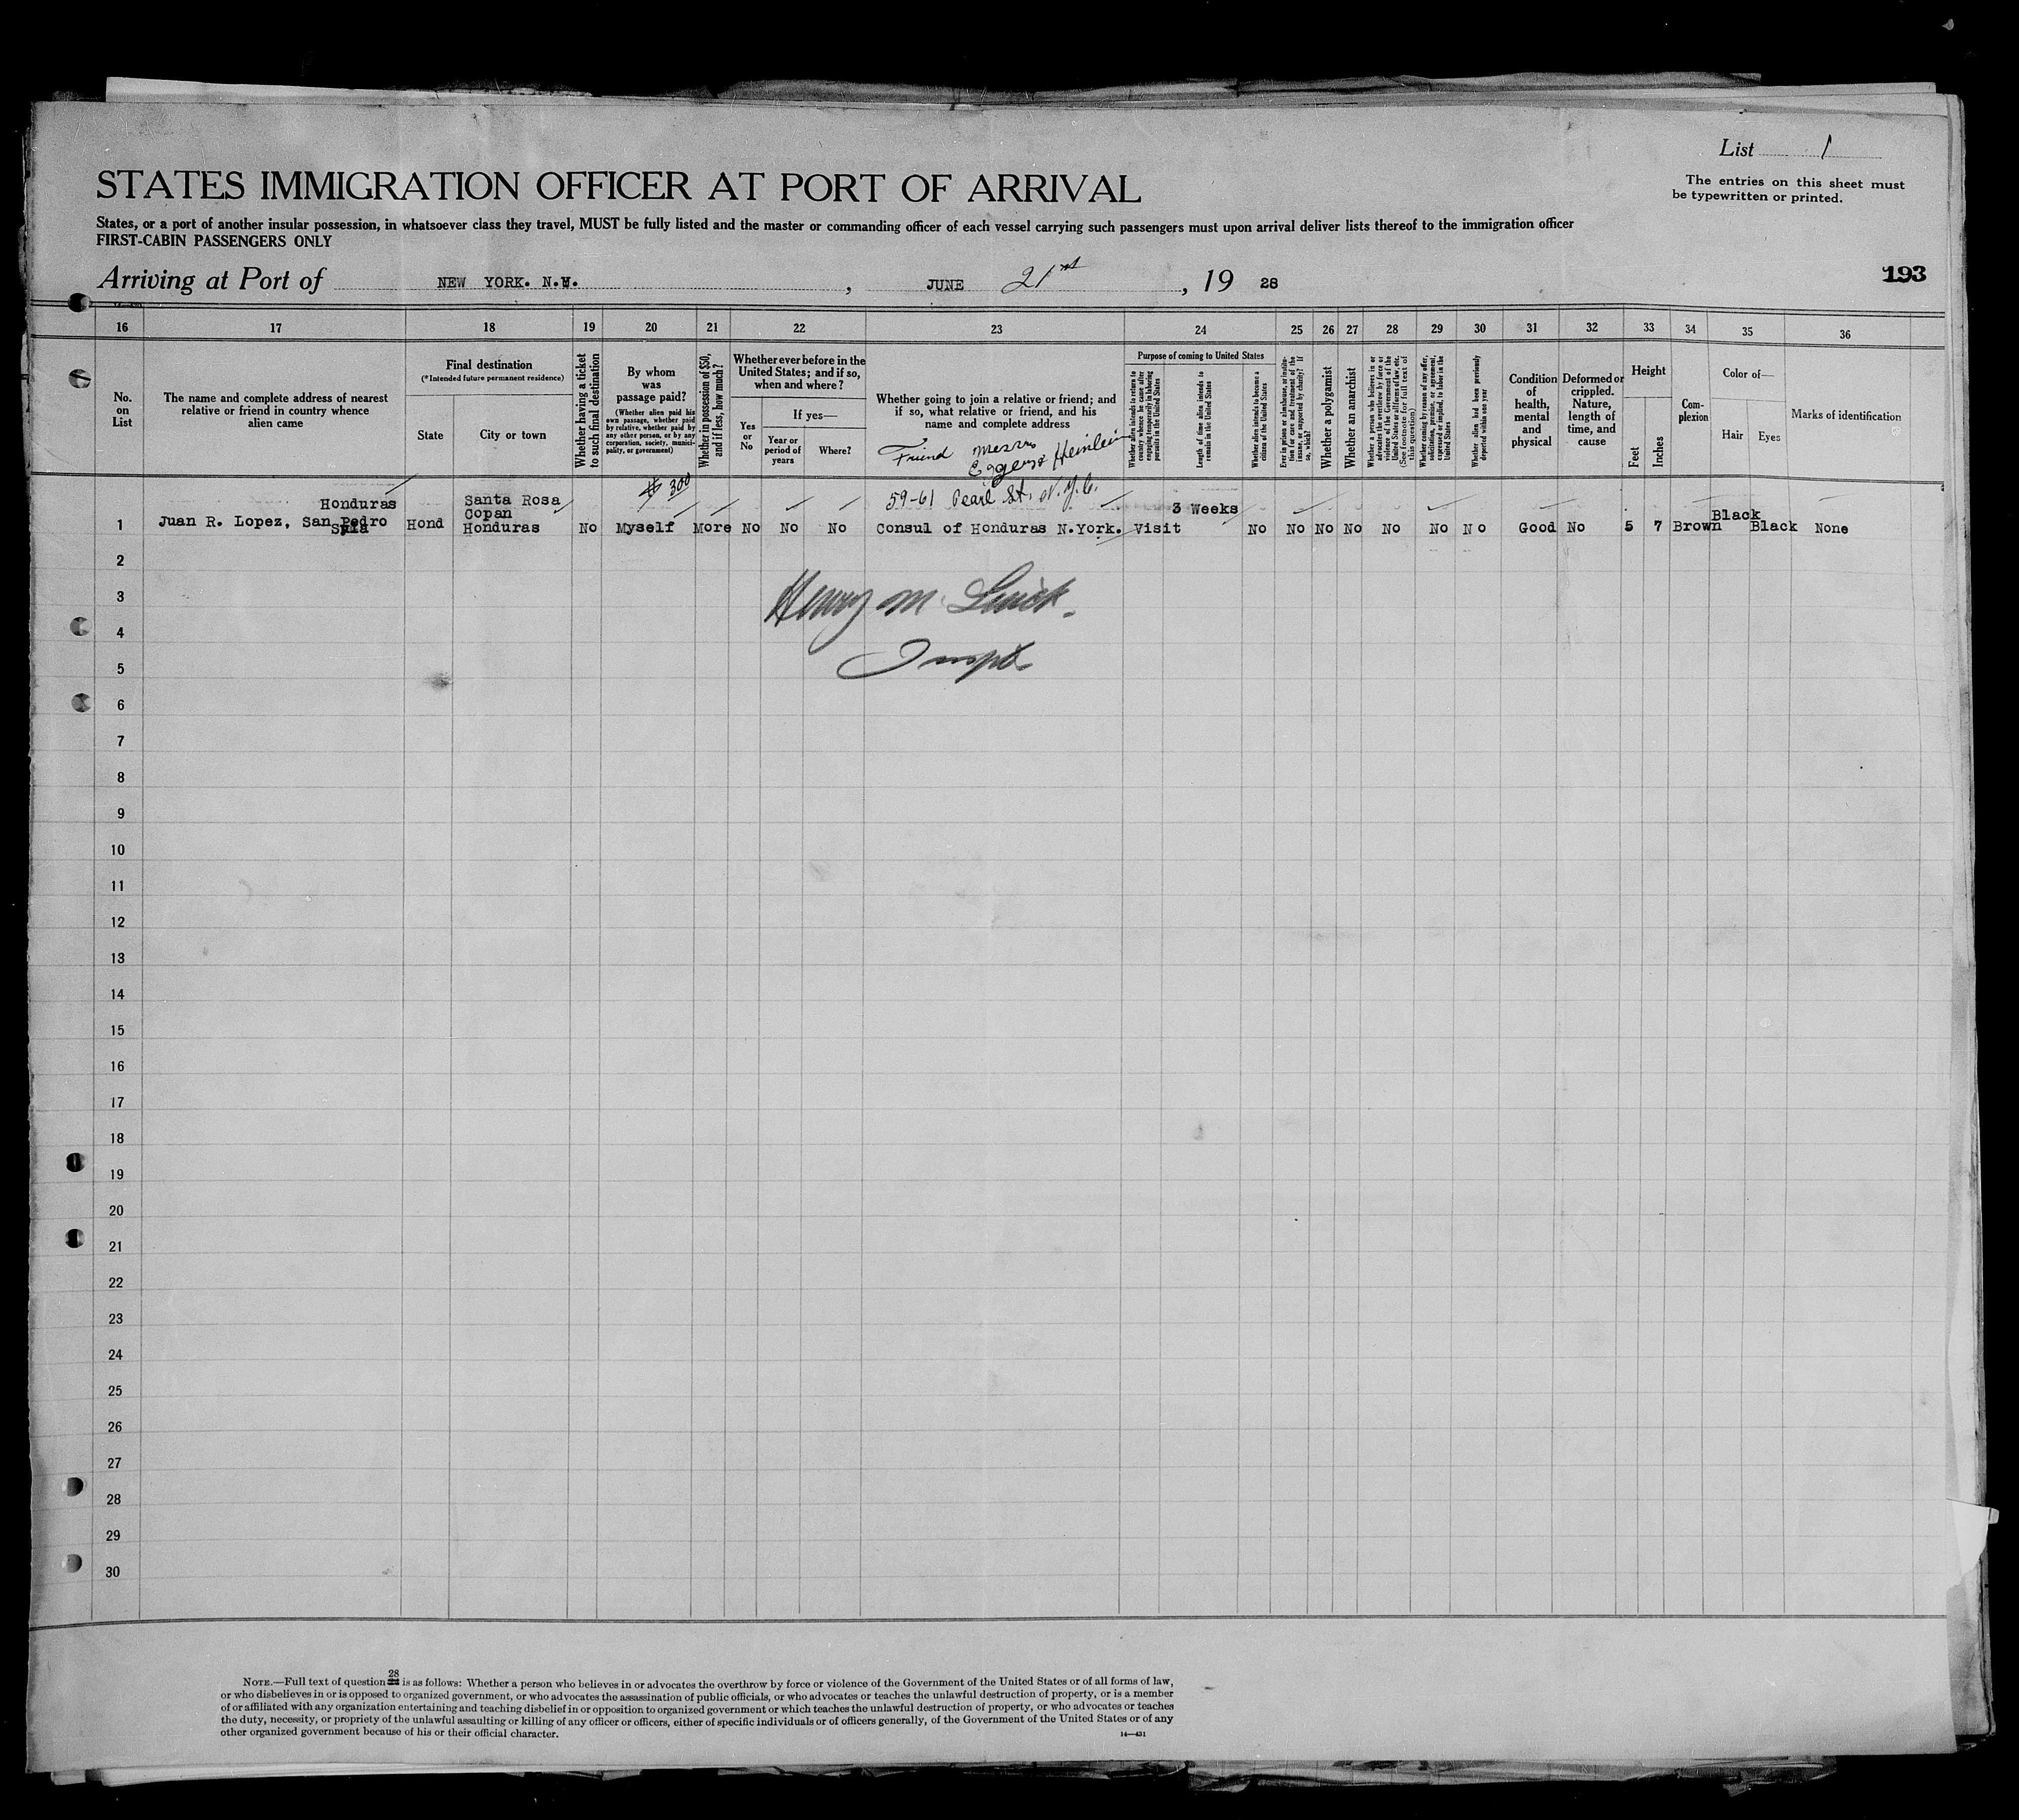 List 1
The entries on this sheet must
be typewritten or printed.
STATES IMMIGRATION OFFICER AT PORT OF ARRIVAL
States, or a port of another insular possession, in whatsoever class they travel, MUST be fully listed and the master or commanding officer of each vessel carrying such passengers must upon arrival deliver lists thereof to the immigration officer
FIRST-CABIN PASSENGERS ONLY
Arriving at Port of NEW YORK. N.Y. , JUNE 21st , 19 28
193
16 17 18 19 20 21 22 23 24 25 26 27 28 29 30 31 32 33 34 35 36
No.
on
List
The name and complete address of nearest
relative or friend in country whence
alien came
Final destination
(*Intended future permanent residence)
State
City or town
Whether having a ticket
to such final destination
By whom
was
passage paid?
(Whether alien paid his
own passage, whether paid
by relative, whether paid by
any other person, or by any
corporation, society, munici-
pality, or government)
Whether in possession of $50,
and if less, how much?
Whether ever before in the
United States; and if so,
when and where?
Yes
or
No
If yes—
Year or
period of
years
Where?
Whether going to join a relative or friend; and
if so, what relative or friend, and his
name and complete address
Purpose of coming to United States
Whether alien intends to return to
country whence he came after
engaging temporarily in laboring
pursuits in the United States
Length of time alien intends to
remain in the United States
Whether alien intends to become a
citizen of the United States
Ever in prison or almshouse, or institu-
tion for care and treatment of the
insane, or supported by charity? If
so, which?
Whether a polygamist
Whether an anarchist
Whether a person who believes in or
advocates the overthrow by force or
violence of the Government of the
United States or all forms of law, etc.
(See footnote for full text of
this question)
Whether coming by reason of any offer,
solicitation, promise, or agreement,
expressed or implied, to labor in the
United States
Whether alien had been previously
deported within one year
Condition
of
health,
mental
and
physical
Deformed or
crippled.
Nature,
length of
time, and
cause
Height
Feet
Inches
Com-
plexion
Color of—
Hair
Eyes
Marks of identification
Friend Messrs
Eggers & Heinlein
Honduras Santa Rosa $ 300 59-61 Pearl St. N.Y.C.
Copan 3 Weeks
1 Juan R. Lopez, San Pedro Hond Honduras No Myself More No No No Consul of Honduras N.York. Visit No No No No No No No Good No 5 7 Brown Black Black None
Sula
2
3
Henry M.
4
5
Inspt
6
7
8
9
10
11
12
13
14
15
16
17
18
19
20
21
22
23
24
25
26
27
28
29
30
28
NOTE.—Full text of question is as follows: Whether a person who believes in or advocates the overthrow by force or violence of the Government of the United States or of all forms of law,
or who disbelieves in or is opposed to organized government, or who advocates the assassination of public officials, or who advocates or teaches the unlawful destruction of property, or is a member
of or affiliated with any organization entertaining and teaching disbelief in or opposition to organized government or which teaches the unlawful destruction of property, or who advocates or teaches
the duty, necessity, or propriety of the unlawful assaulting or killing of any officer or officers, either of specific individuals or of officers generally, of the Government of the United States or of any
other organized government because of his or their official character.
14—431